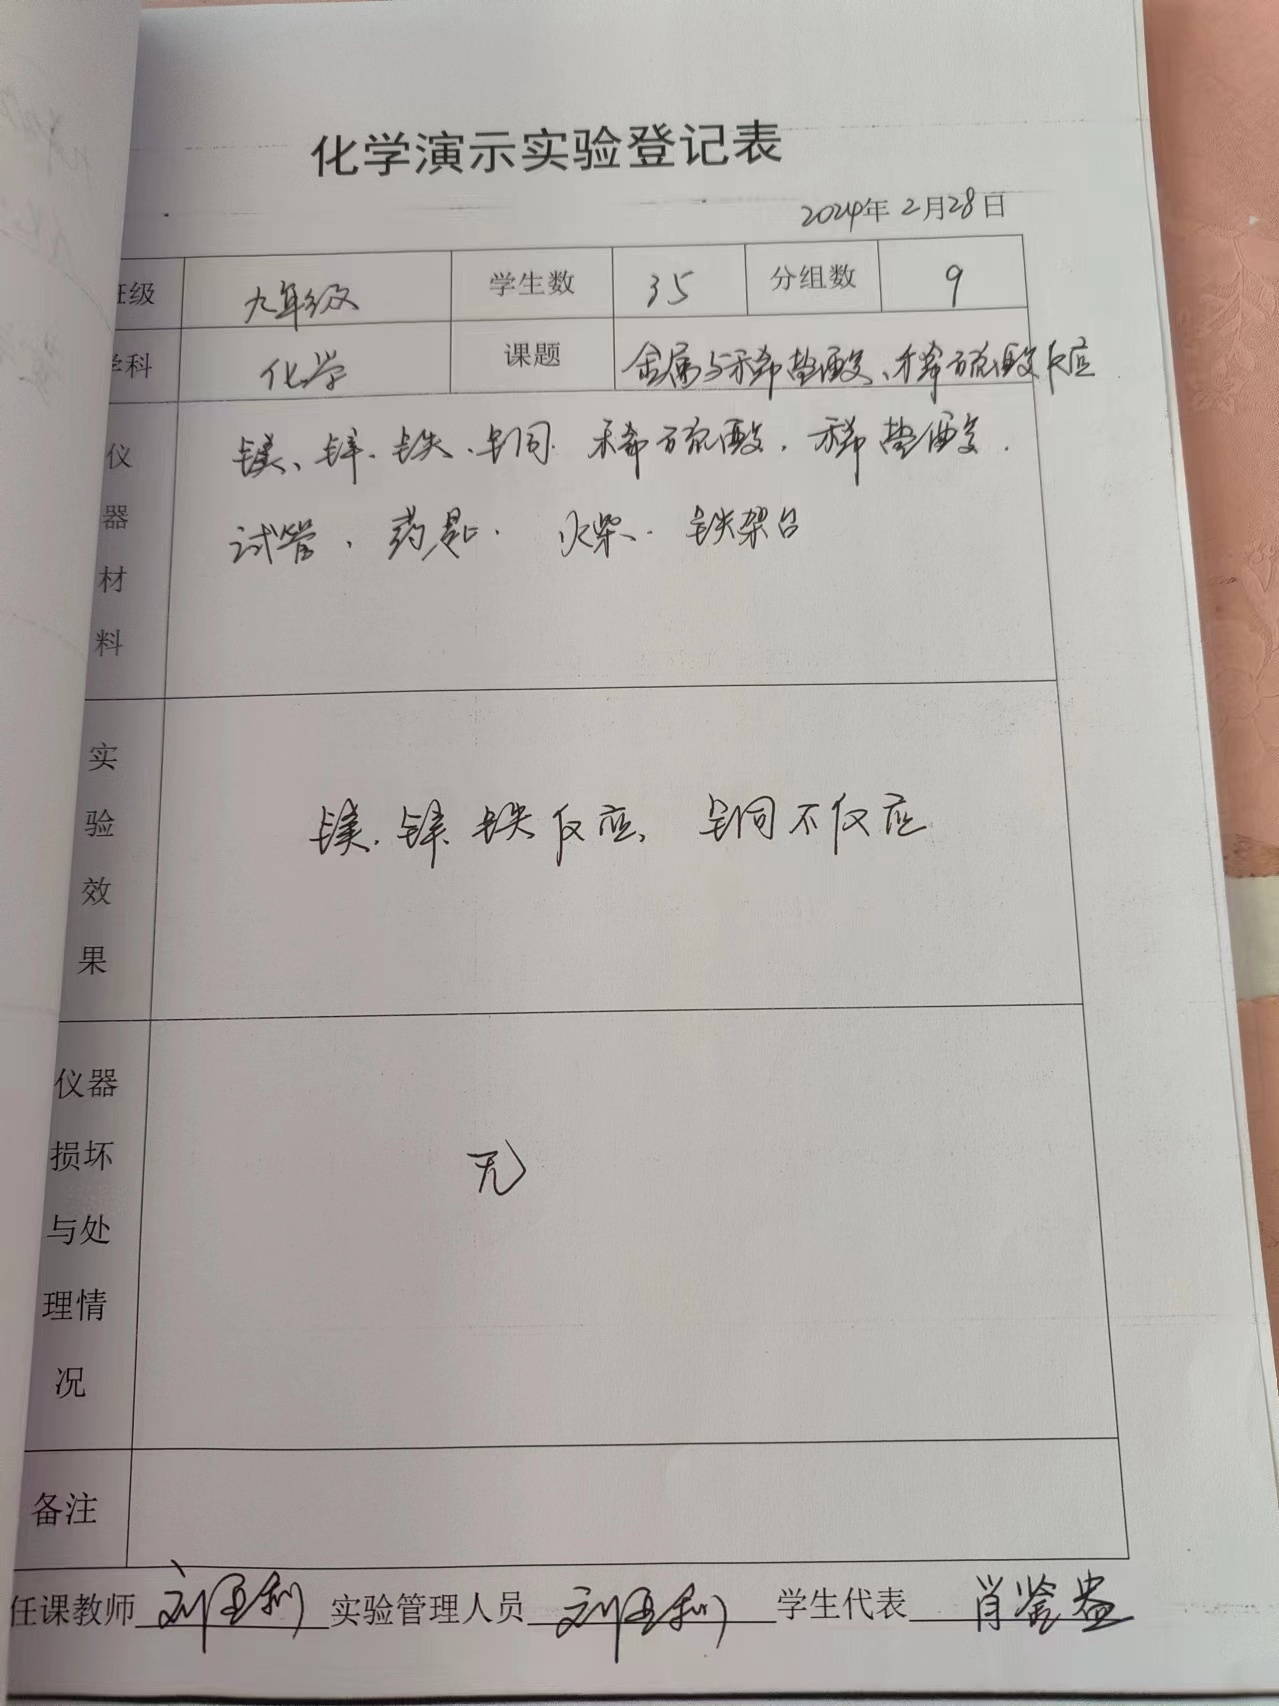 化学演示实验登记表
2024年2月28日
班级 九年级 学生数 35 分组数 9
学科 化学 课题 金属与稀盐酸、稀硫酸反应
仪器材料 镁、锌、铁、铜、稀硫酸、稀盐酸、
试管、药匙、火柴、铁架台
实验效果 镁、锌、铁反应，铜不反应
仪器损坏与处理情况 无
备注
任课教师 刘亚利 实验管理人员 刘亚利 学生代表 肖